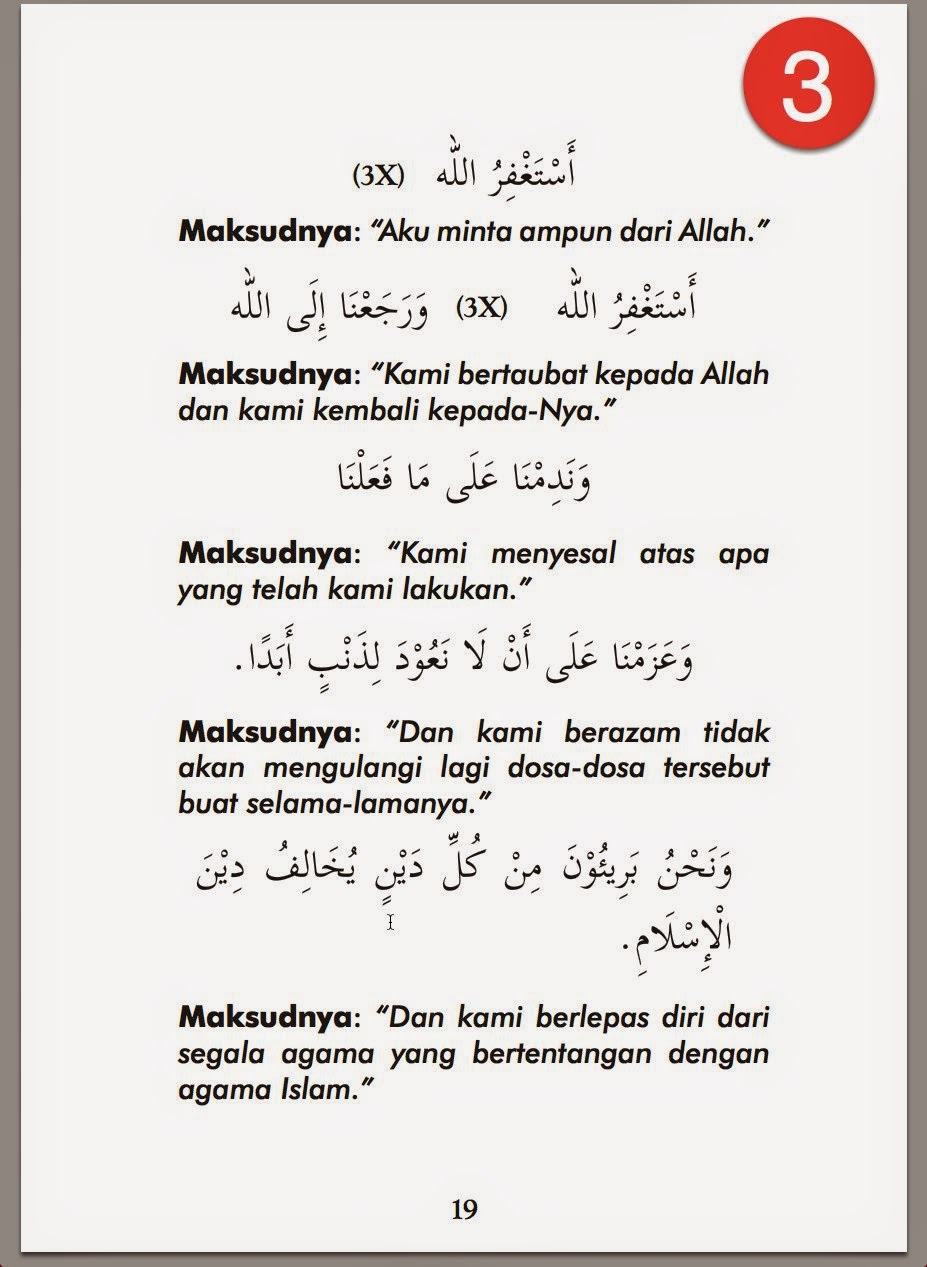 3
أَسْتَغْفِرُ اللّٰه (3X)
Maksudnya: “Aku minta ampun dari Allah.”
أَسْتَغْفِرُ اللّٰه (3X) وَرَجَعْنَا إِلَى اللّٰه
Maksudnya: “Kami bertaubat kepada Allah
dan kami kembali kepada-Nya.”
وَنَدِمْنَا عَلَى مَا فَعَلْنَا
Maksudnya: “Kami menyesal atas apa
yang telah kami lakukan.”
وَعَزَمْنَا عَلَى أَنْ لَا نَعُوْدَ لِذَنْبٍ أَبَدًا.
Maksudnya: “Dan kami berazam tidak
akan mengulangi lagi dosa-dosa tersebut
buat selama-lamanya.”
وَنَحْنُ بَرِيئُوْنَ مِنْ كُلِّ دَيْنٍ يُخَالِفُ دِيْنَ
الْإِسْلَامِ.
Maksudnya: “Dan kami berlepas diri dari
segala agama yang bertentangan dengan
agama Islam.”
19